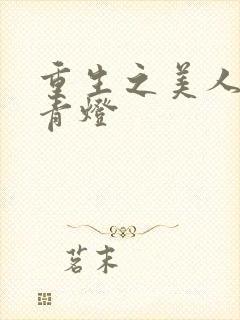 重生之美人
青燈
茗末